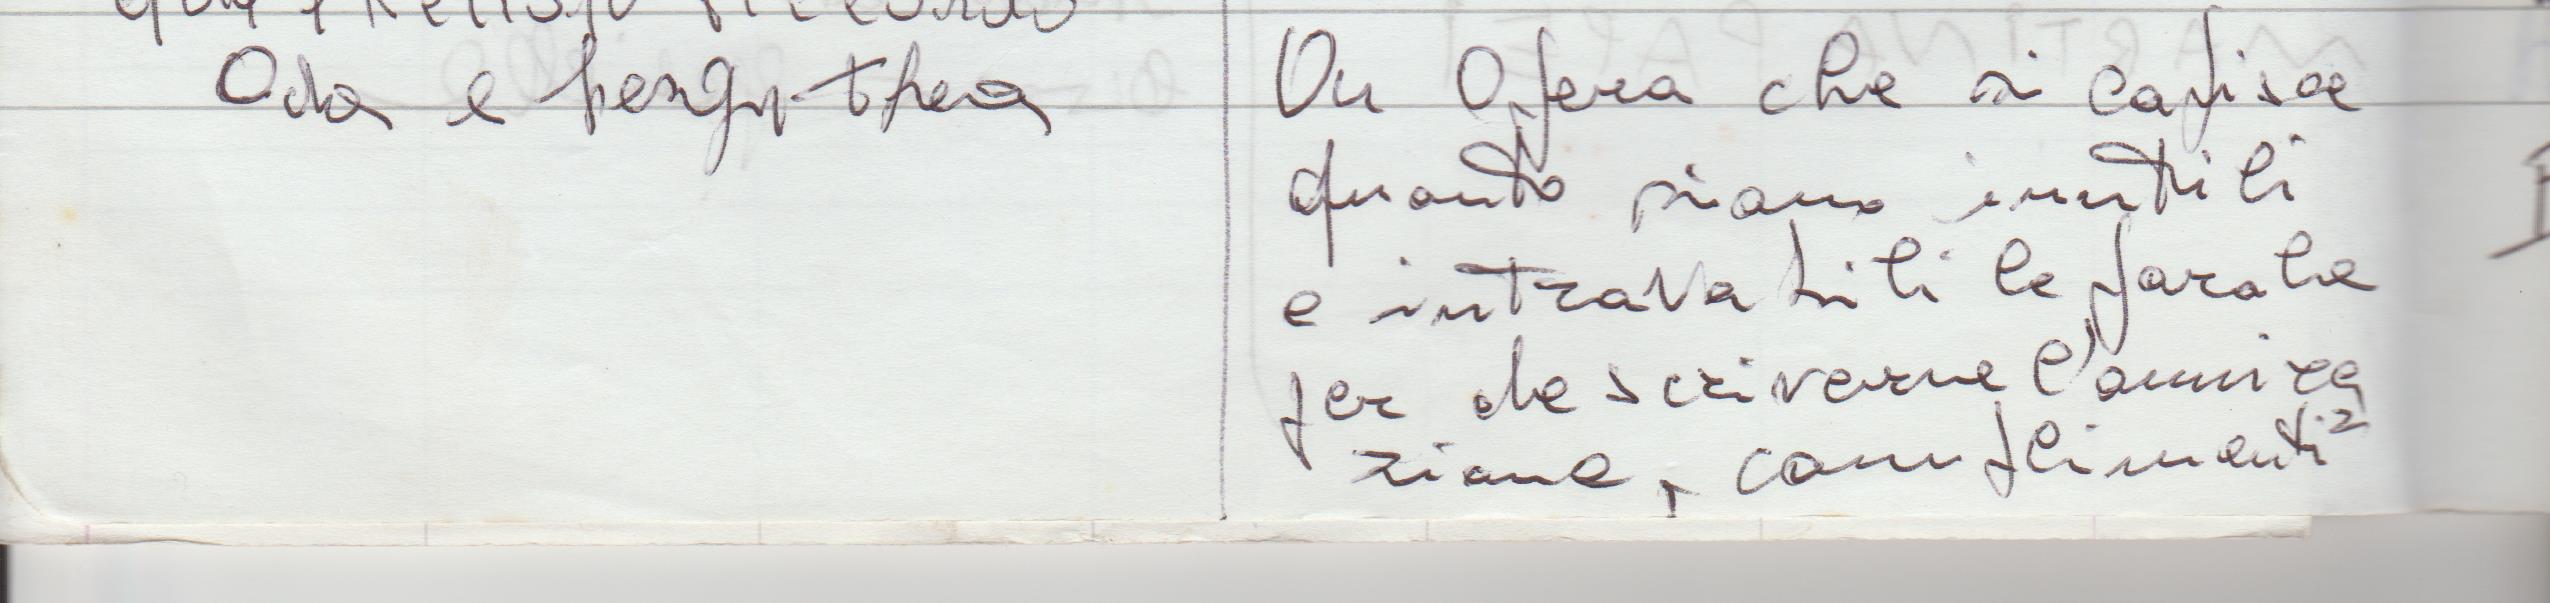 Oda e
Un Opera che si capisce
quanto siano inutili
e introvabili le parole
per descriverne l'ammira
zione, complimenti